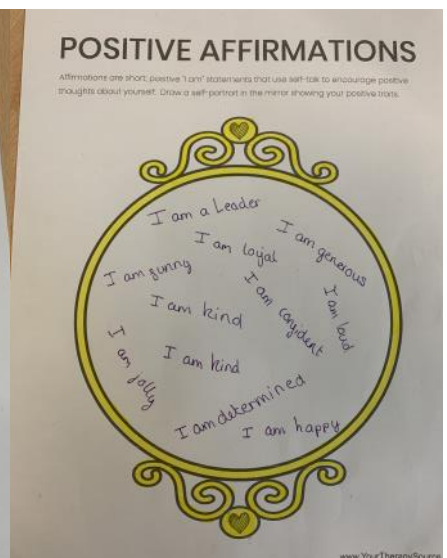 POSITIVE AFFIRMATIONS
Affirmations are short, positive "I am" statements that use self-talk to encourage positive
thoughts about yourself. Draw a self-portrait in the mirror showing your positive traits.
I am a Leader
I am loyal
I am generous
I am funny
I am kind
I am confident
I am loud
I am kind
I am jolly
I am determined
I am happy
www.YourTherapySource